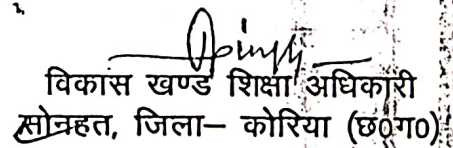 विकास खण्ड शिक्षा अधिकारी
सोनहत, जिला– कोरिया (छ०ग०)